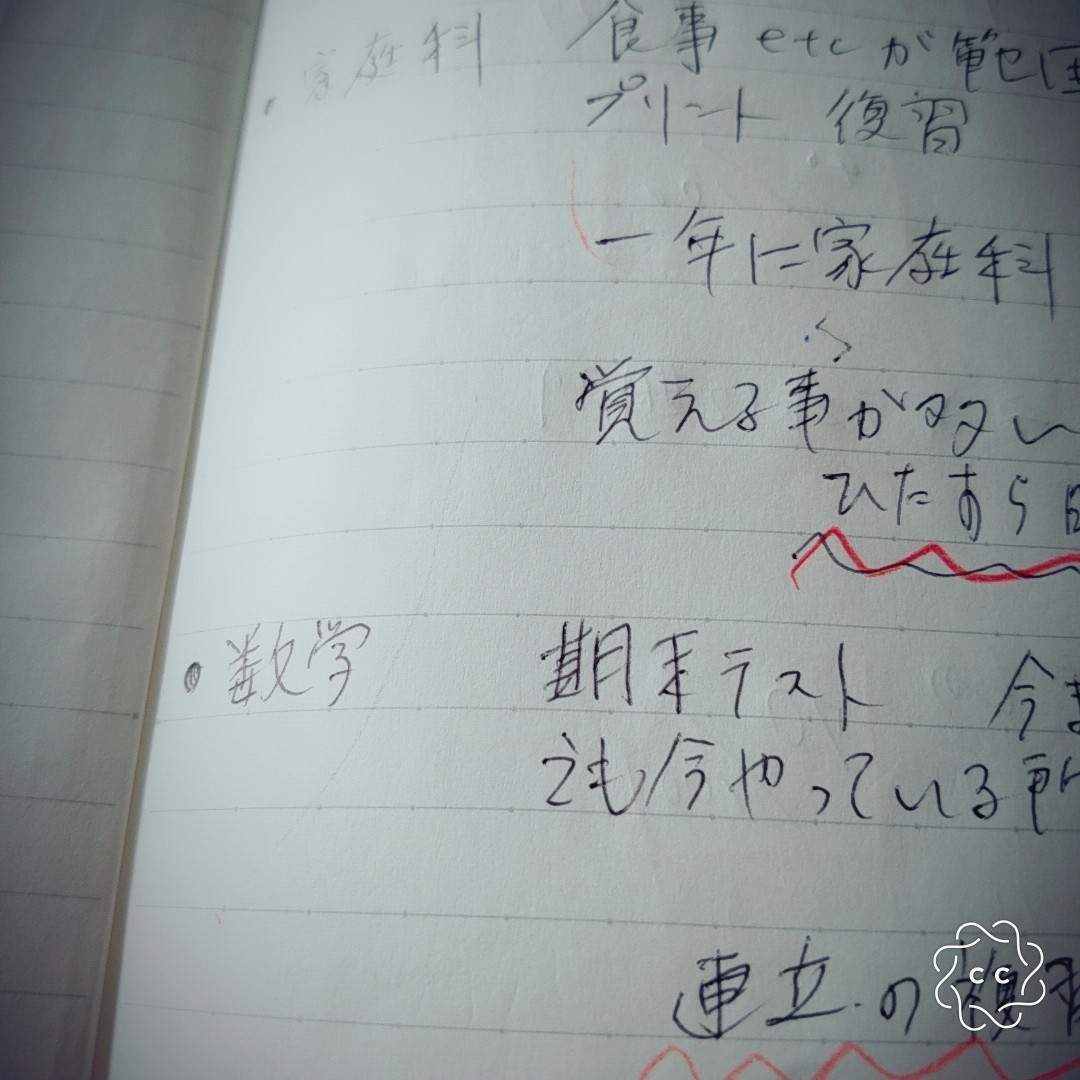 ・家庭科 食事 etcが範囲
プリント 復習
一年に家庭科
覚える事が多い
ひたすら
・数学 期末テスト 今ま
でも今やっている所
連立の復習
CC